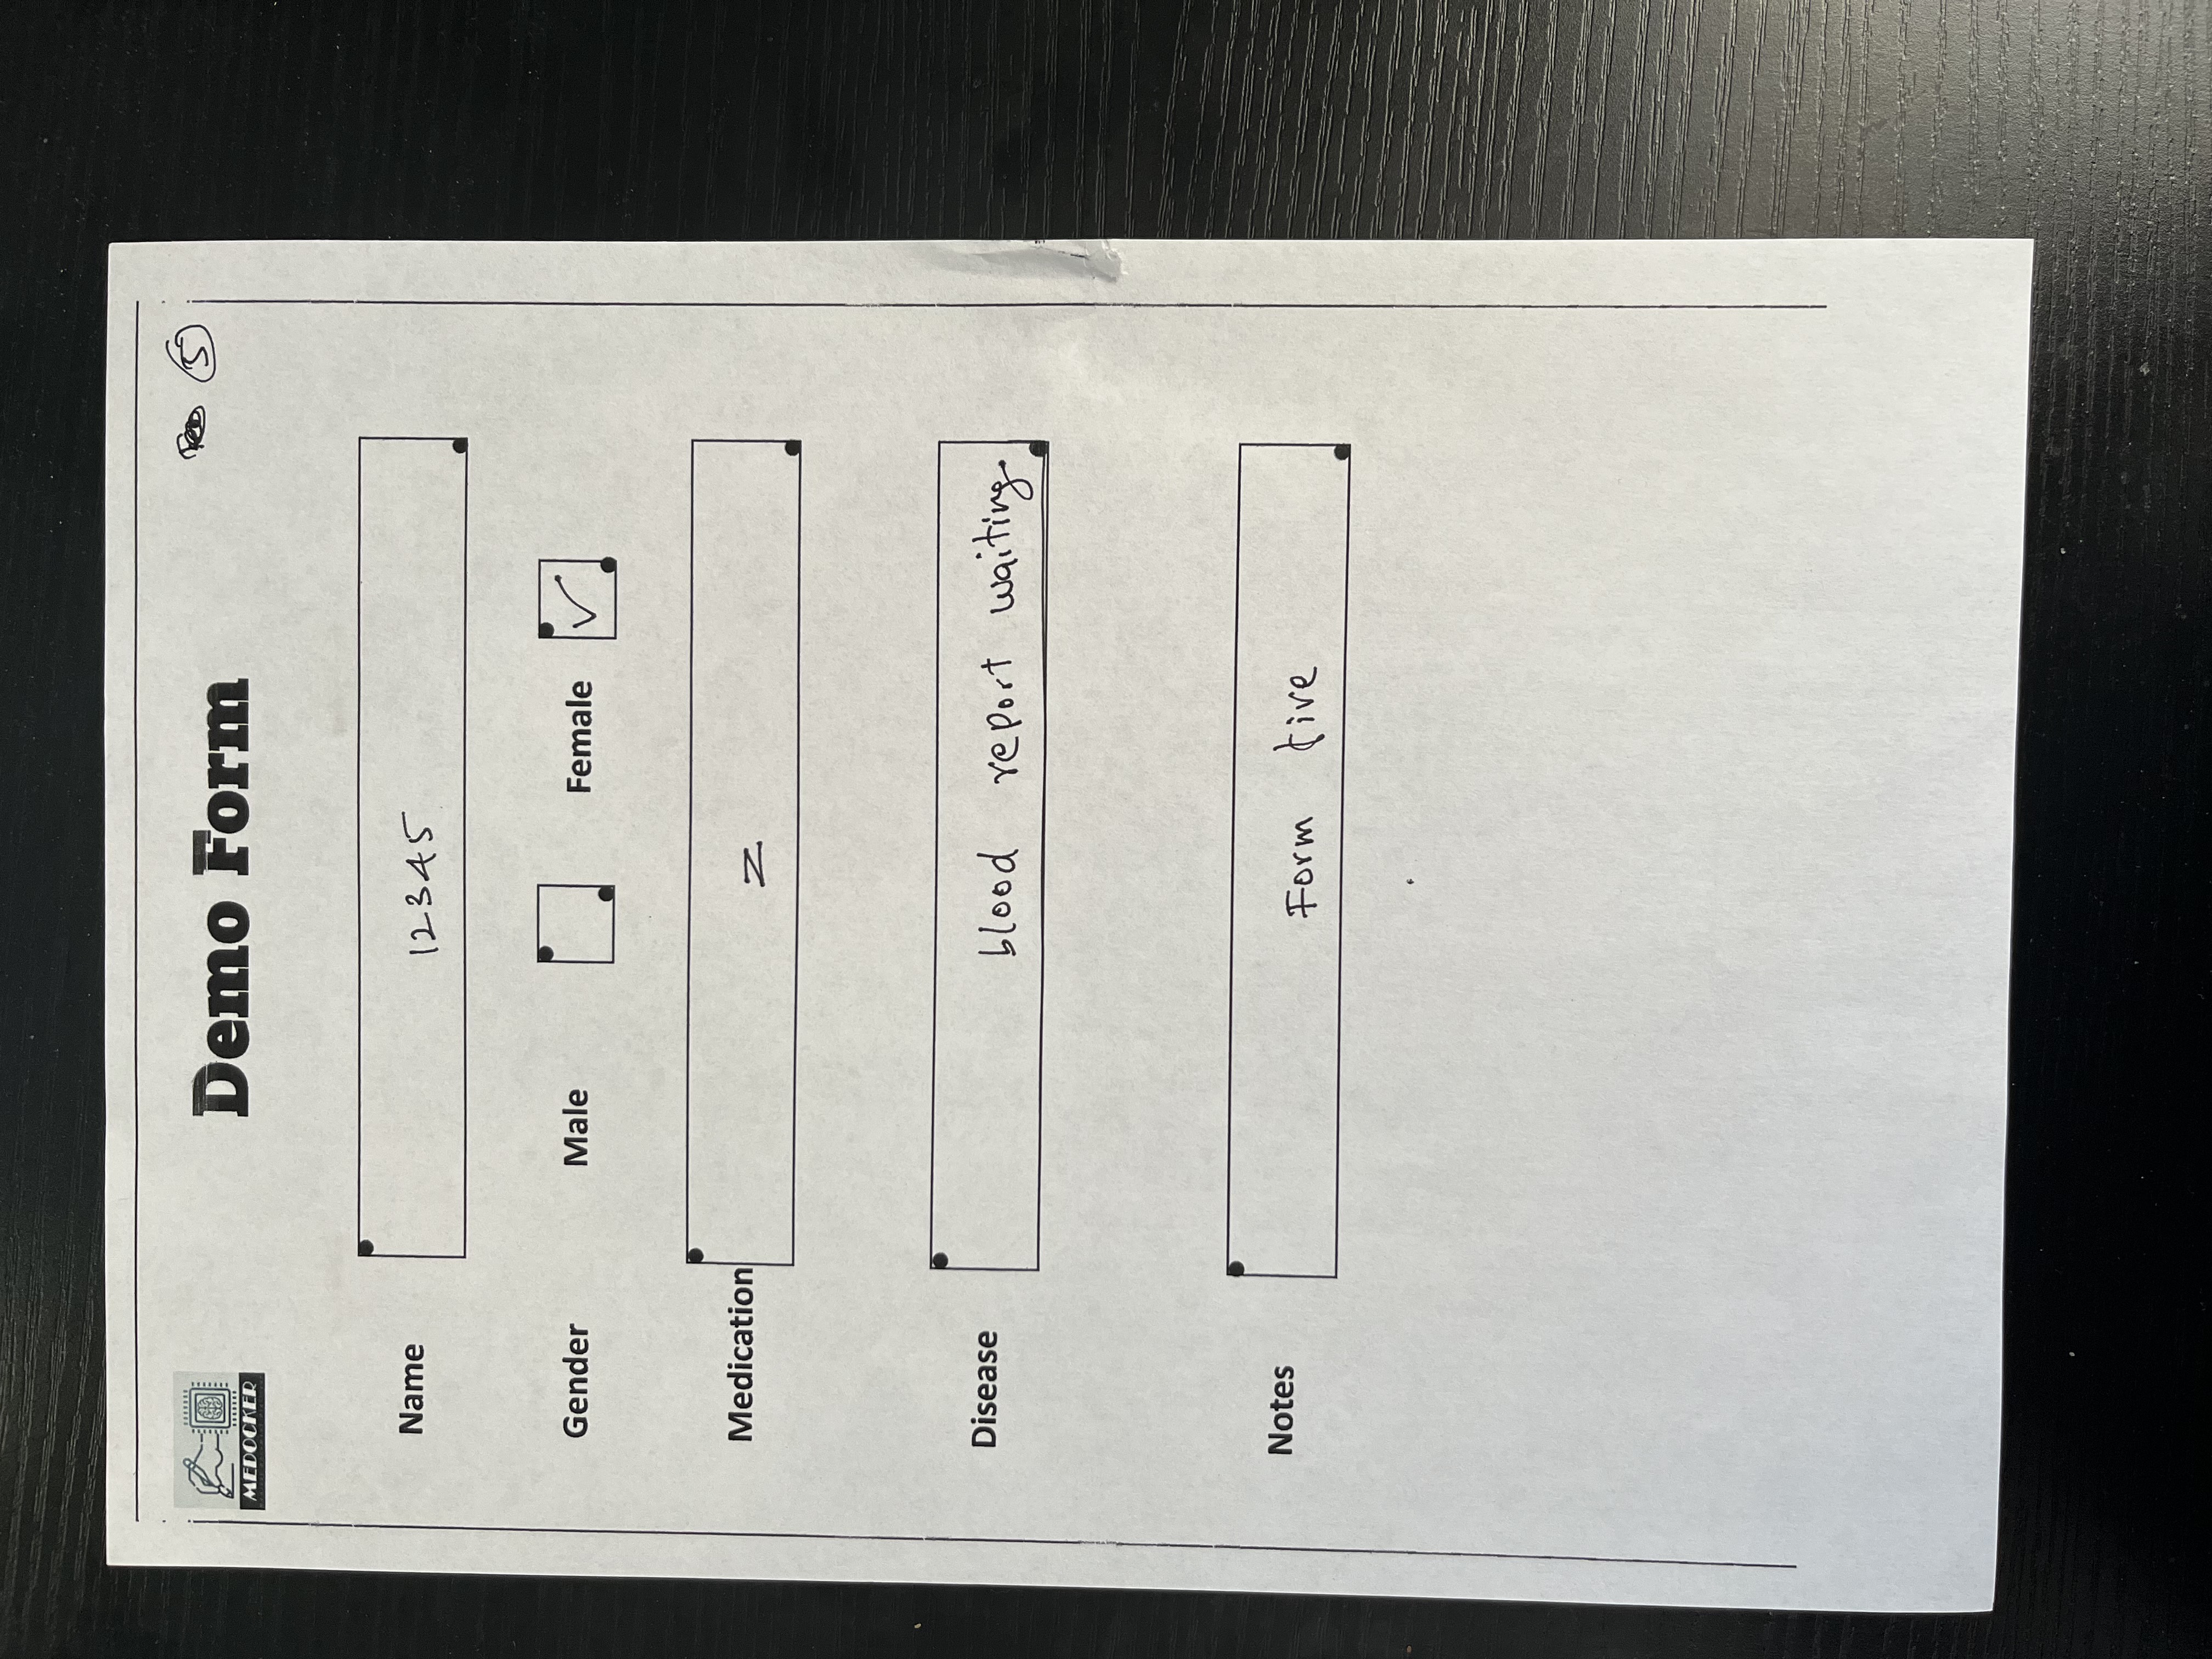 MEDOCKER
Demo Form
5
Name 12345
Gender Male Female ✓
Medication Z
Disease blood report waiting
Notes Form five